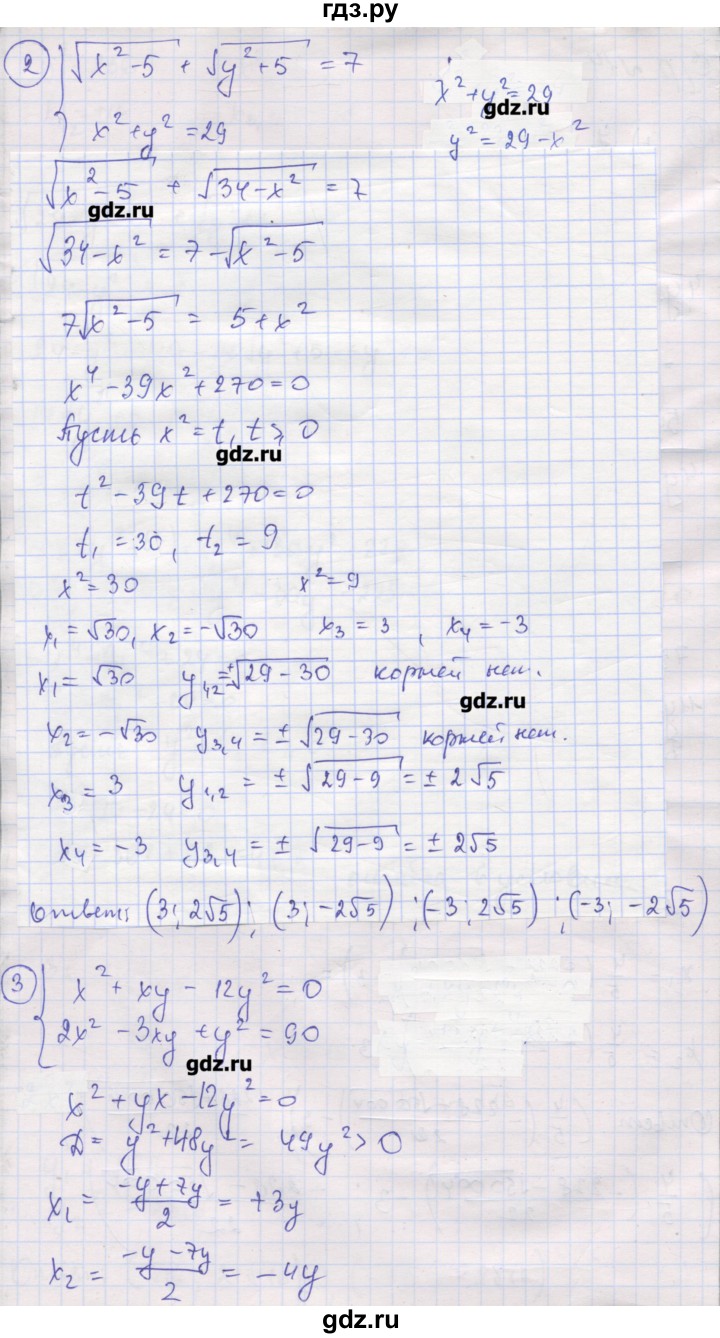 гдз.ру
2 { √(x² - 5) + √(y² + 5) = 7
x² + y² = 29
x² + y² = 29
gdz.ru
y² = 29 - x²
√(x² - 5) + √(34 - x²) = 7
gdz.ru
√(34 - x²) = 7 - √(x² - 5)
7√(x² - 5) = 5 + x²
x⁴ - 39x² + 270 = 0
Пусть x² = t, t ⩾ 0
gdz.ru
t² - 39t + 270 = 0
t₁ = 30, t₂ = 9
x² = 30 x² = 9
x₁ = √30, x₂ = -√30 x₃ = 3, x₄ = -3
x₁ = √30 y₁,₂ = ±√(29 - 30) корней нет.
gdz.ru
x₂ = -√30 y₃,₄ = ± √(29 - 30) корней нет.
x₃ = 3 y₁,₂ = ± √(29 - 9) = ± 2√5
x₄ = -3 y₃,₄ = ± √(29 - 9) = ± 2√5
Ответ: (3; 2√5); (3; -2√5); (-3; 2√5); (-3; -2√5)
3 { x² + xy - 12y² = 0
2x² - 3xy + y² = 90
gdz.ru
x² + yx - 12y² = 0
D = y² + 48y² = 49y² > 0
x₁ = (-y + 7y)/2 = +3y
x₂ = (-y - 7y)/2 = -4y
gdz.ru